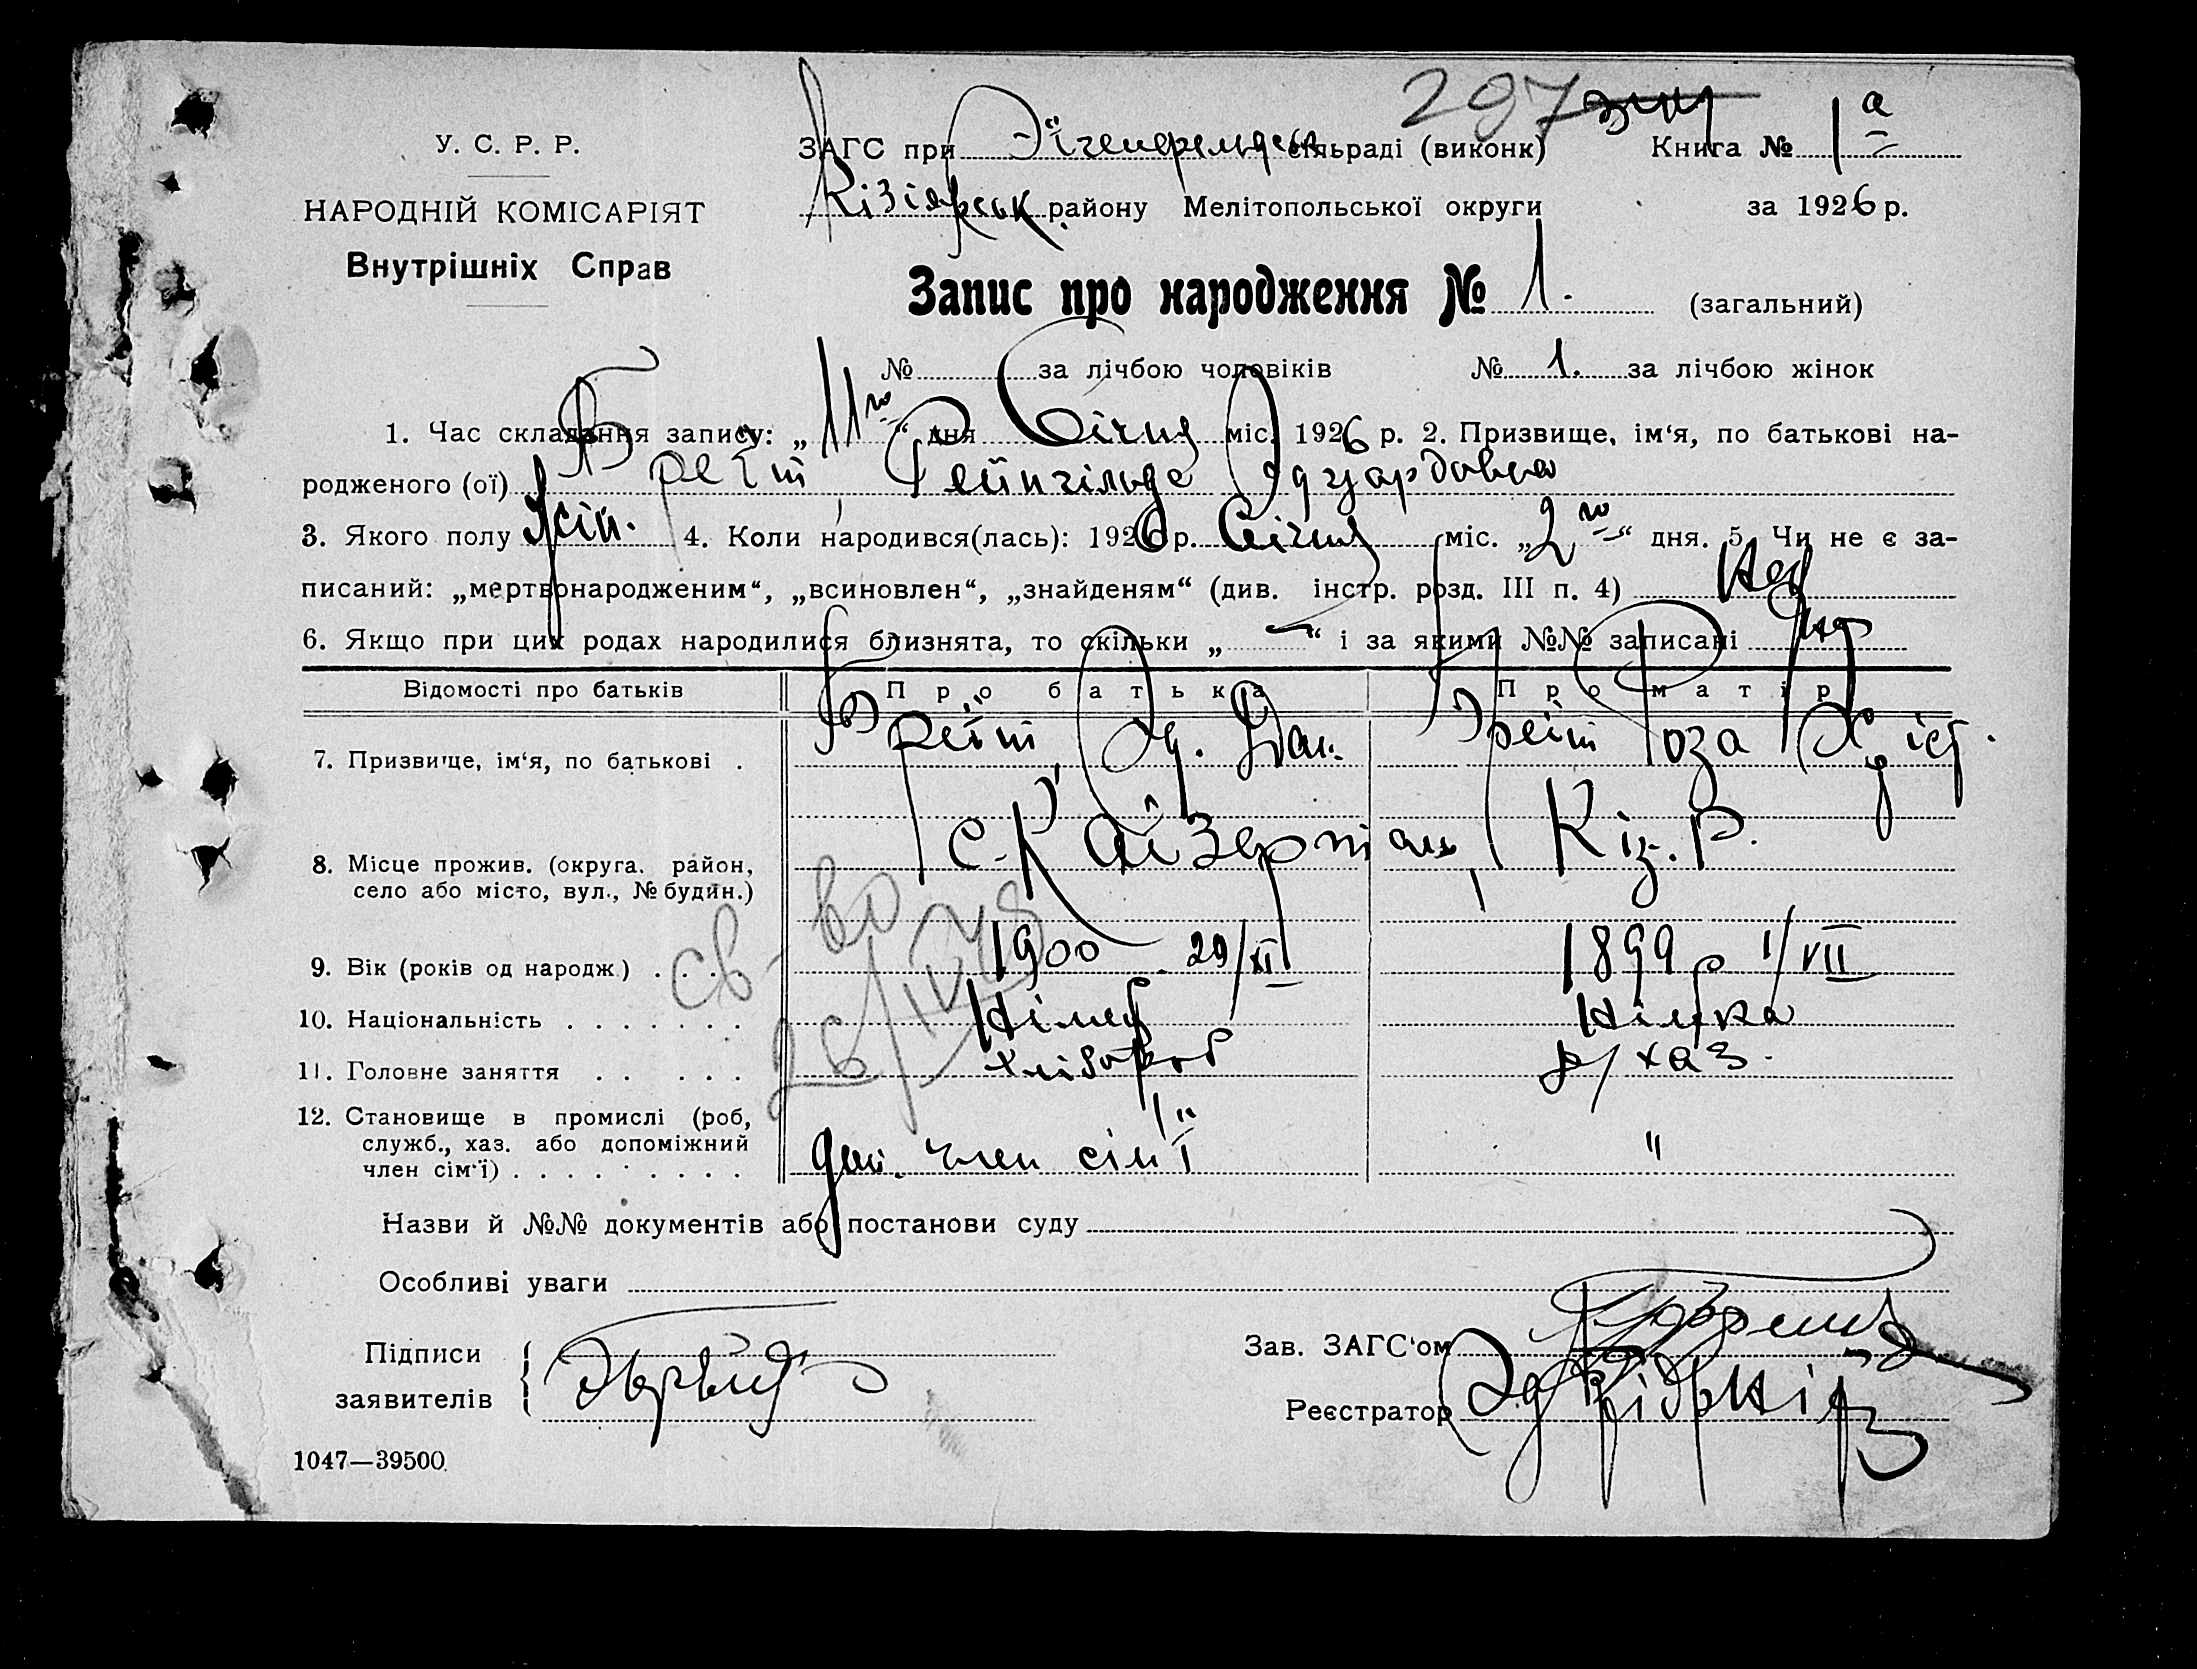 297
У. С. Р. Р.
НАРОДНІЙ КОМІСАРІЯТ
Внутрішніх Справ
ЗАГС при сільраді (виконк) Книга № 1а
Кізіярськ району Мелітопольської округи за 1926 р.
Запис про народження № 1. (загальний)
№ за лічбою чоловіків № 1. за лічбою жінок
1. Час складання запису: „11го“ дня Січня міс. 1926 р. 2. Призвище, ім‘я, по батькові на-
родженого (ої) Рейнгільда Едуардовна
3. Якого полу Жін. 4. Коли народився(лась): 1926 р. Січня міс. „2го“ дня. 5. Чи не є за-
писаний: „мертвонародженим“, „всиновлен“, „знайденям“ (див. інстр. розд. III п. 4)
6. Якщо при цих родах народилися близнята, то скільки „—“ і за якими №№ записані
Відомості про батьків Про батька Про матір
7. Призвище, ім‘я, по батькові . Ед. Роза
8. Місце прожив. (округа, район, село або місто, вул., № будин.) с. Кайзерталь, Кіз. Р.
9. Вік (років од народж.) . . . . 1900 29/XI 1899 р 1/VII
10. Національність . . . . . . . Німець Німка
11. Головне заняття . . . . . . хлібороб д/хаз.
12. Становище в промислі (роб, служб., хаз. або допоміжний член сім‘ї) . . . . . . . . . доп. член сім"ї "
св-во
26/IV 48
Назви й №№ документів або постанови суду
Особливі уваги
Підписи заявителів
Зав. ЗАГС‘ом
Реєстратор
1047—39500.